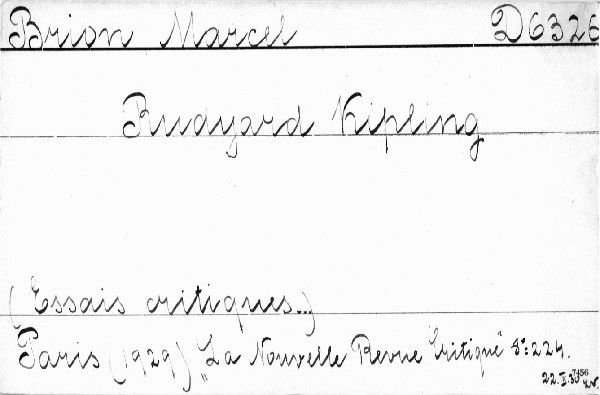 Brion Marcel D6326
Rudyard Kipling
(Essais critiques...)
Paris (1929) „La Nouvelle Revue Critique" 8°: 224.
22. II. 30
7456